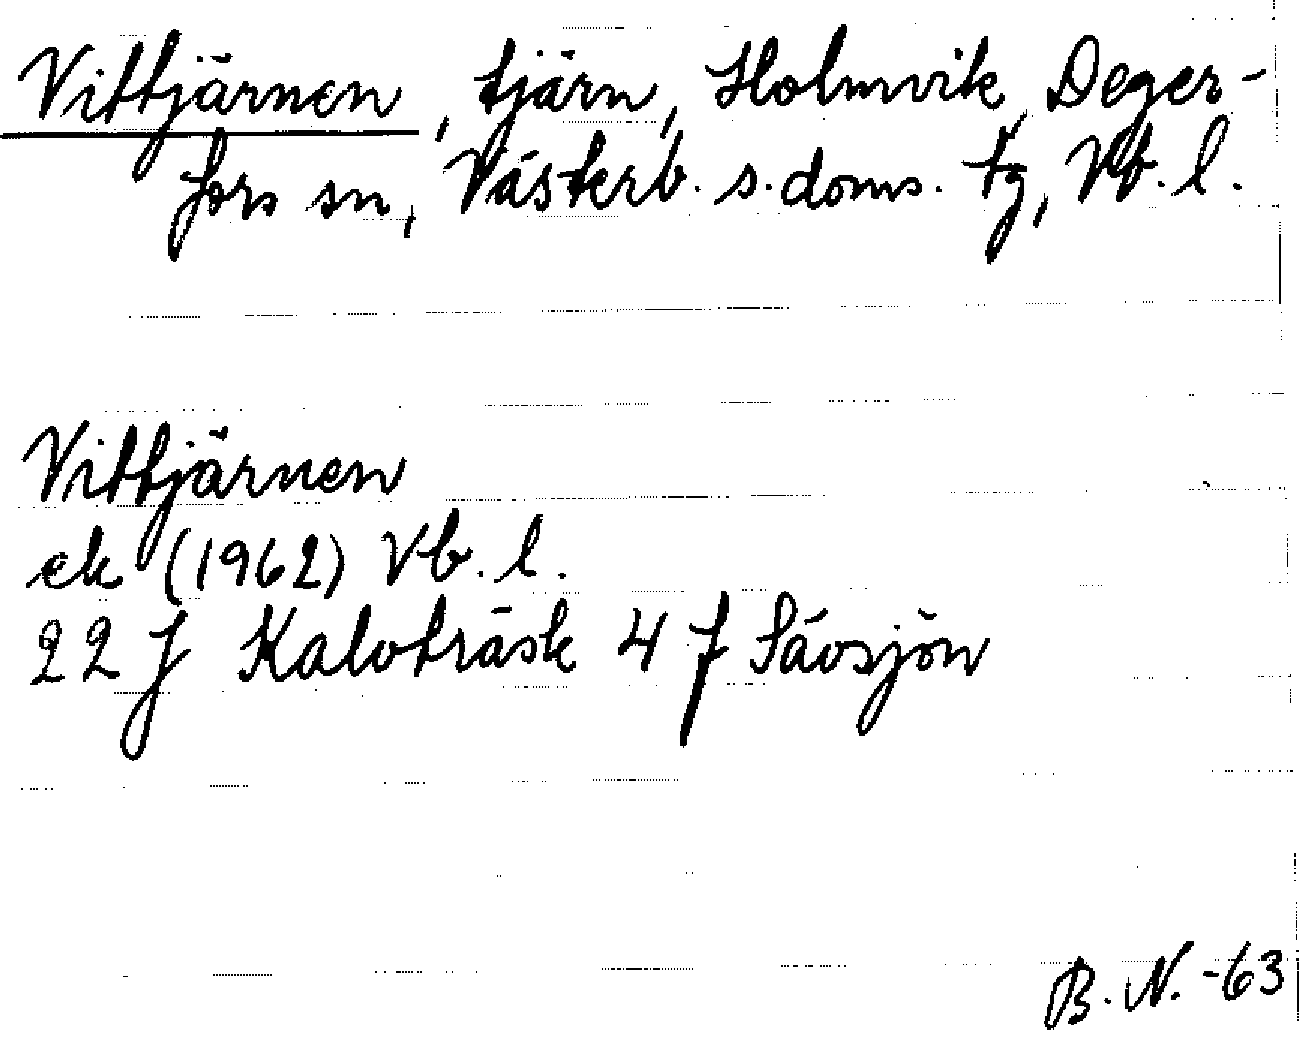 Vittjärnen, tjärn, Holmvik, Deger-
fors sn, Västerb. s. doms. tg, Vb. l.
Vittjärnen
ek (1962) Vb. l.
22 J Kalvträsk 4 f Sävsjön
B. N. -63